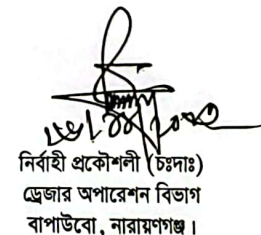 নির্বাহী প্রকৌশলী (চঃদাঃ)
ড্রেজার অপারেশন বিভাগ
বাপাউবো, নারায়ণগঞ্জ।